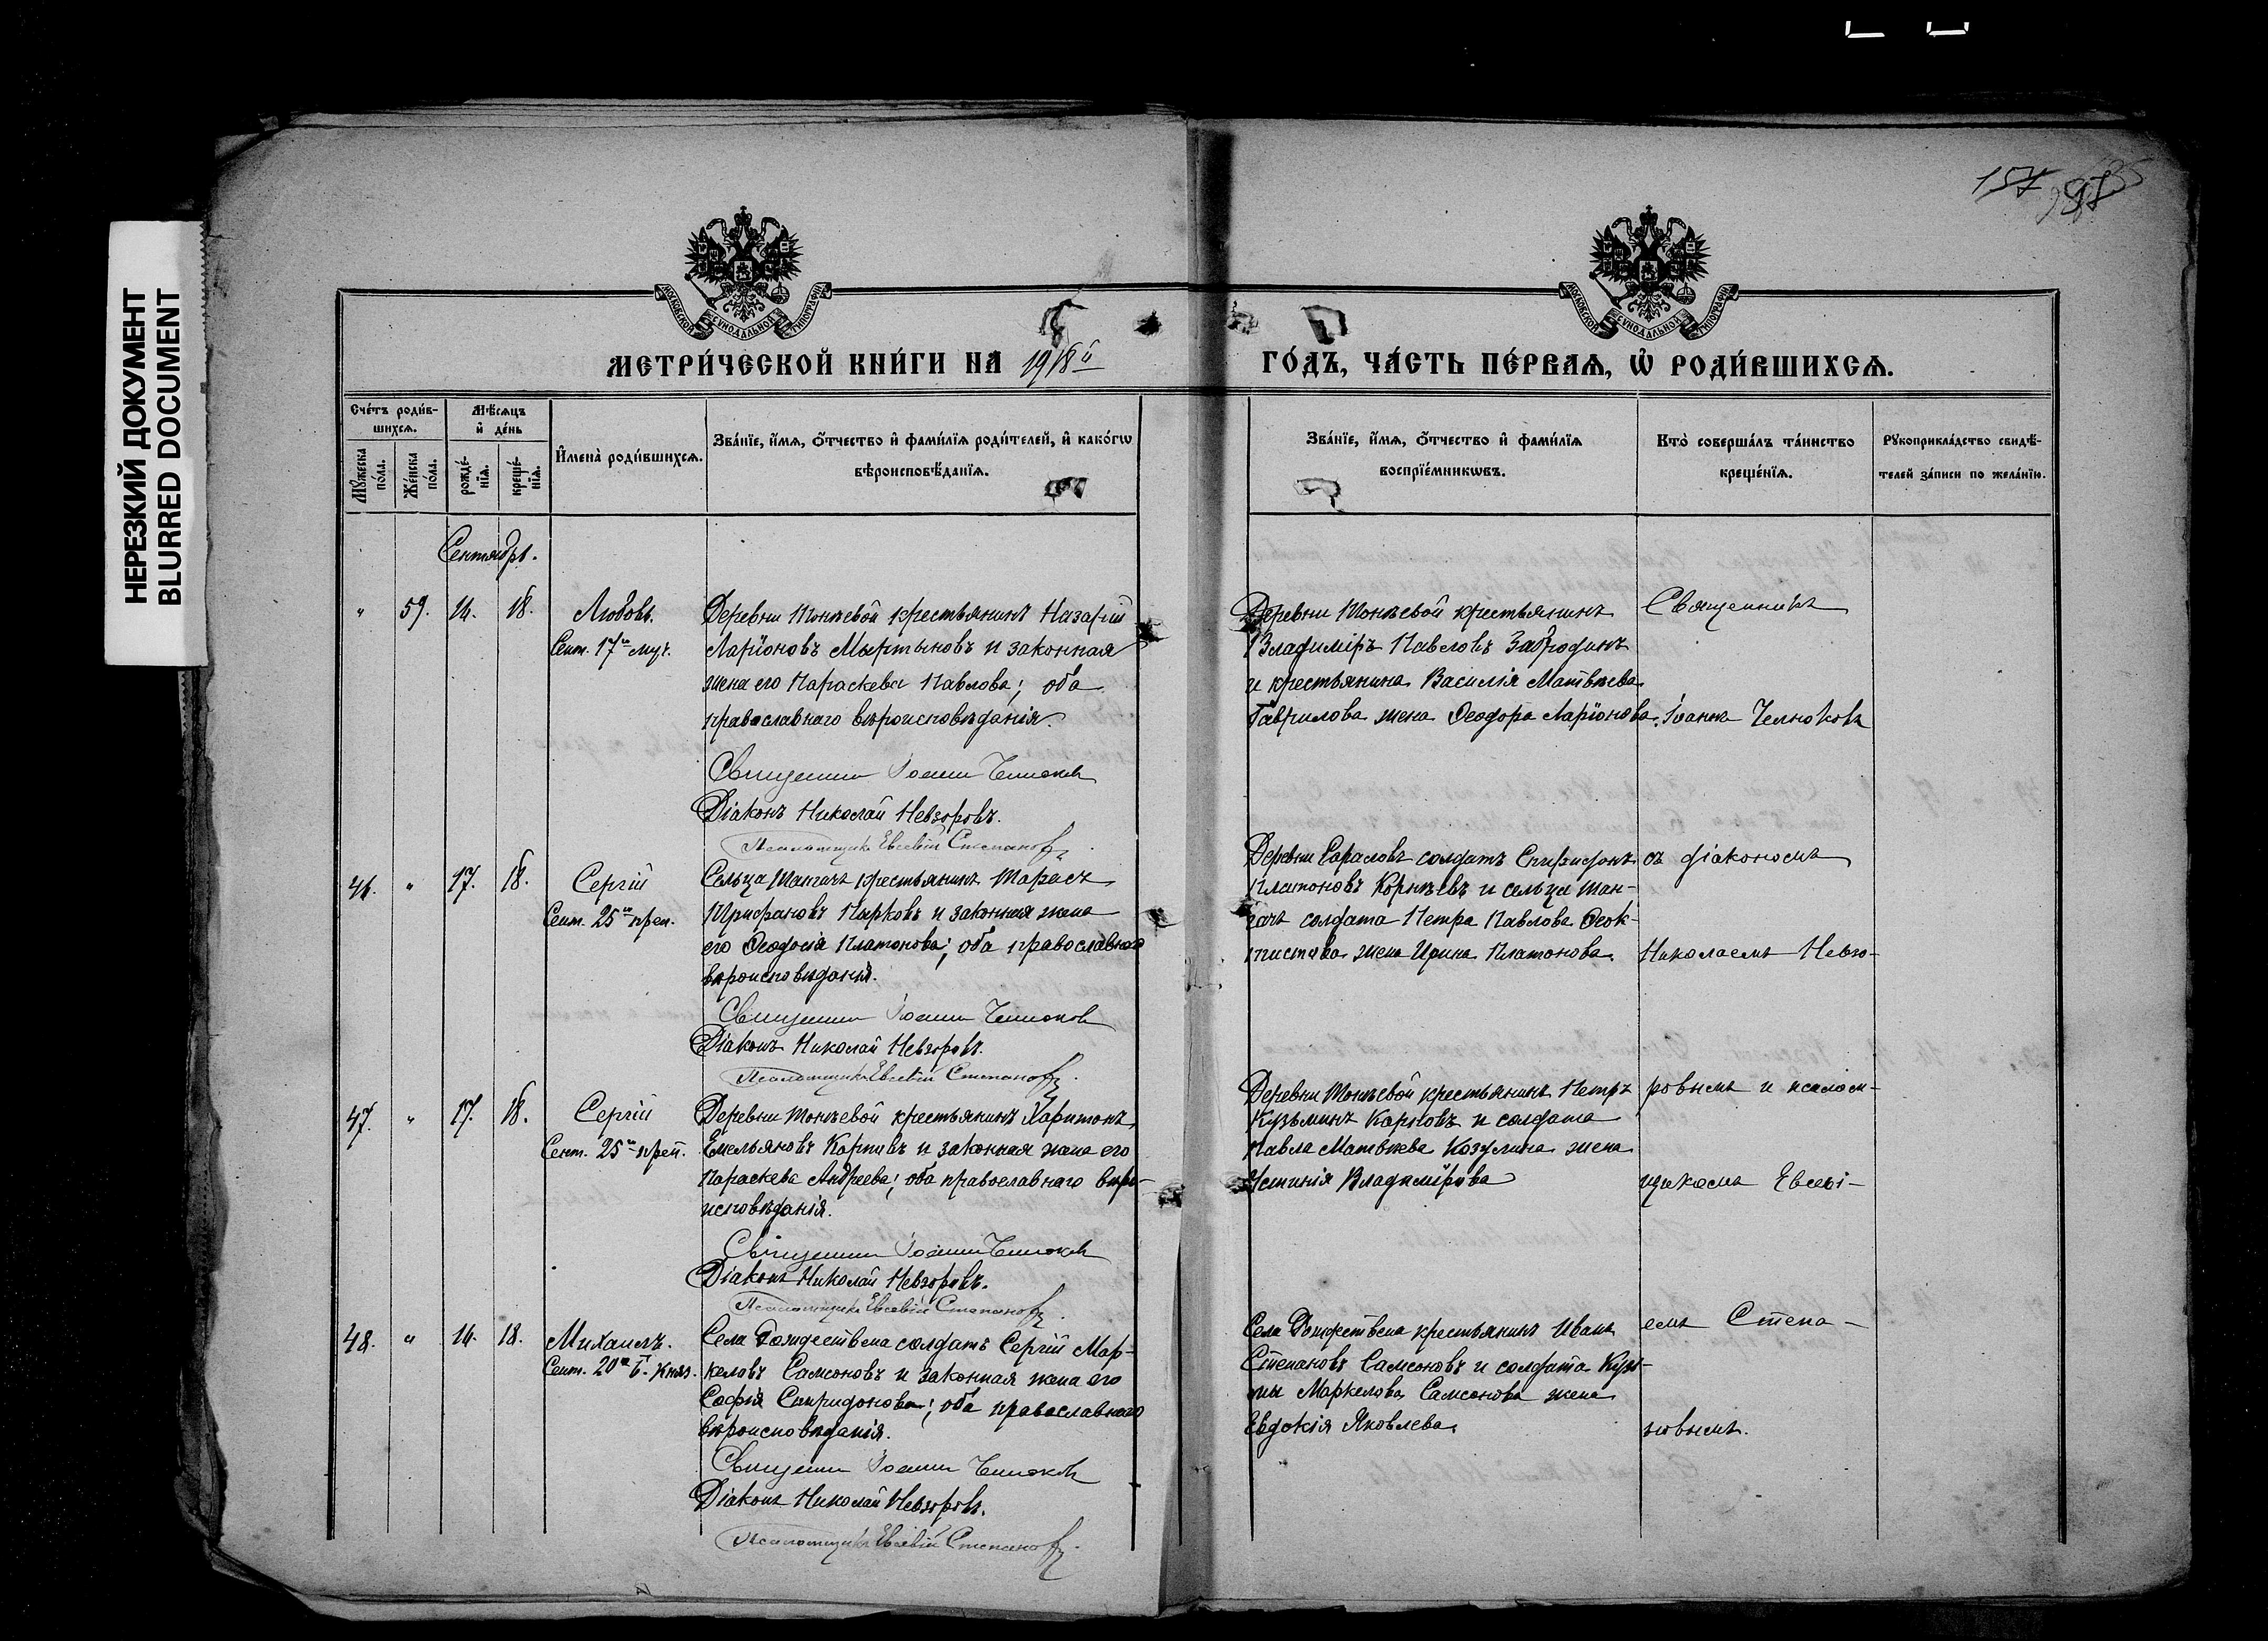 НЕРЕЗКИЙ ДОКУМЕНТ
BLURRED DOCUMENT
157
МОСКОВСКОЙ СѴНОДАЛЬНОЙ ТИПОГРАФІИ
МОСКОВСКОЙ СѴНОДАЛЬНОЙ ТИПОГРАФІИ
МЕТРИ́ЧЕСКОЙ КНИ́ГИ НА 1918й ГО́ДЪ, ЧА́СТЬ ПЕ́РВАѦ, Ѡ҆ РОДИ́ВШИХСѦ.
Счéтъ роди́в-
шихсѧ.
Мꙋжеска
по́ла.
Же́нска
по́ла.
Мѣ́сѧцъ
и҆ де́нь
рожде́-
нїѧ.
креще́-
нїѧ.
И҆мена̀ роди́вшихсѧ.
Зва́нїе, и҆́мѧ, ѻ҆́тчество и҆ фами́лїѧ роди́телей, и҆ како́гѡ
вѣроисповѣ́данїѧ.
Зва́нїе, и҆́мѧ, ѻ҆́тчество и҆ фами́лїѧ
воспрїе́мникѡвъ.
Кто̀ соверша́лъ та́инство
креще́нїѧ.
Рꙋкоприкла́дство свидѣ́-
телей за́писи по жела́нїю.
Сентябрь.
" 59. 16. 18.
Любовь.
Сент. 17го муч.
Деревни Тонѣевой крестьянинъ Назарій
Ларіоновъ Мартыновъ и законная
жена его Параскева Павлова; оба
православнаго вѣроисповѣданія.
Священникъ Іоаннъ Челноковъ
Діаконъ Николай Невзоровъ.
Псаломщикъ Евсевій Степановъ.
Деревни Тонѣевой крестьянинъ
Владиміръ Павловъ Завродинъ
и крестьянина Василія Матвѣева
Гаврилова жена Ѳеодора Ларіонова.
Священникъ
Іоаннъ Челноковъ
46. " 17. 18.
Сергій
Сент. 25го преп.
Сельца Шангачъ крестьянинъ Тарасъ
Пырковъ и законная жена
его Ѳеодосія Платонова; оба православнаго
вѣроисповѣданія.
Священникъ Іоаннъ Челноковъ
Діаконъ Николай Невзоровъ.
Псаломщикъ Евсевій Степановъ.
Деревни солдатъ Спиридонъ
Платоновъ Корнѣевъ и сельца Шан-
гачъ солдата Петра Павлова Ѳеок-
тистова жена Ирина Платонова.
съ діакономъ
Николаемъ Невзо-
47. " 17. 18.
Сергій
Сент. 25го преп.
Деревни Тонѣевой крестьянинъ Харитонъ
Емельяновъ Карповъ и законная жена его
Параскева Андреева; оба православнаго вѣро-
исповѣданія.
Священникъ Іоаннъ Челноковъ
Діаконъ Николай Невзоровъ.
Псаломщикъ Евсевій Степановъ.
Деревни Тонѣевой крестьянинъ Петръ
Кузьминъ Карповъ и солдата
Павла Матвѣева Козулина жена
Устинія Владимірова
ровымъ и псалом-
щикомъ Евсеві-
48. " 16. 18.
Михаилъ.
Сент. 20го Б. Княз.
Села Рождествена солдатъ Сергій Мар-
келовъ Самсоновъ и законная жена его
Софія Спиридонова; оба православнаго
вѣроисповѣданія.
Священникъ Іоаннъ Челноковъ
Діаконъ Николай Невзоровъ.
Псаломщикъ Евсевій Степановъ.
Села Рождествена крестьянинъ Иванъ
Степановъ Самсоновъ и солдата Кузь-
мы Маркелова Самсонова жена
Евдокія Яковлева.
емъ Степа-
новымъ.